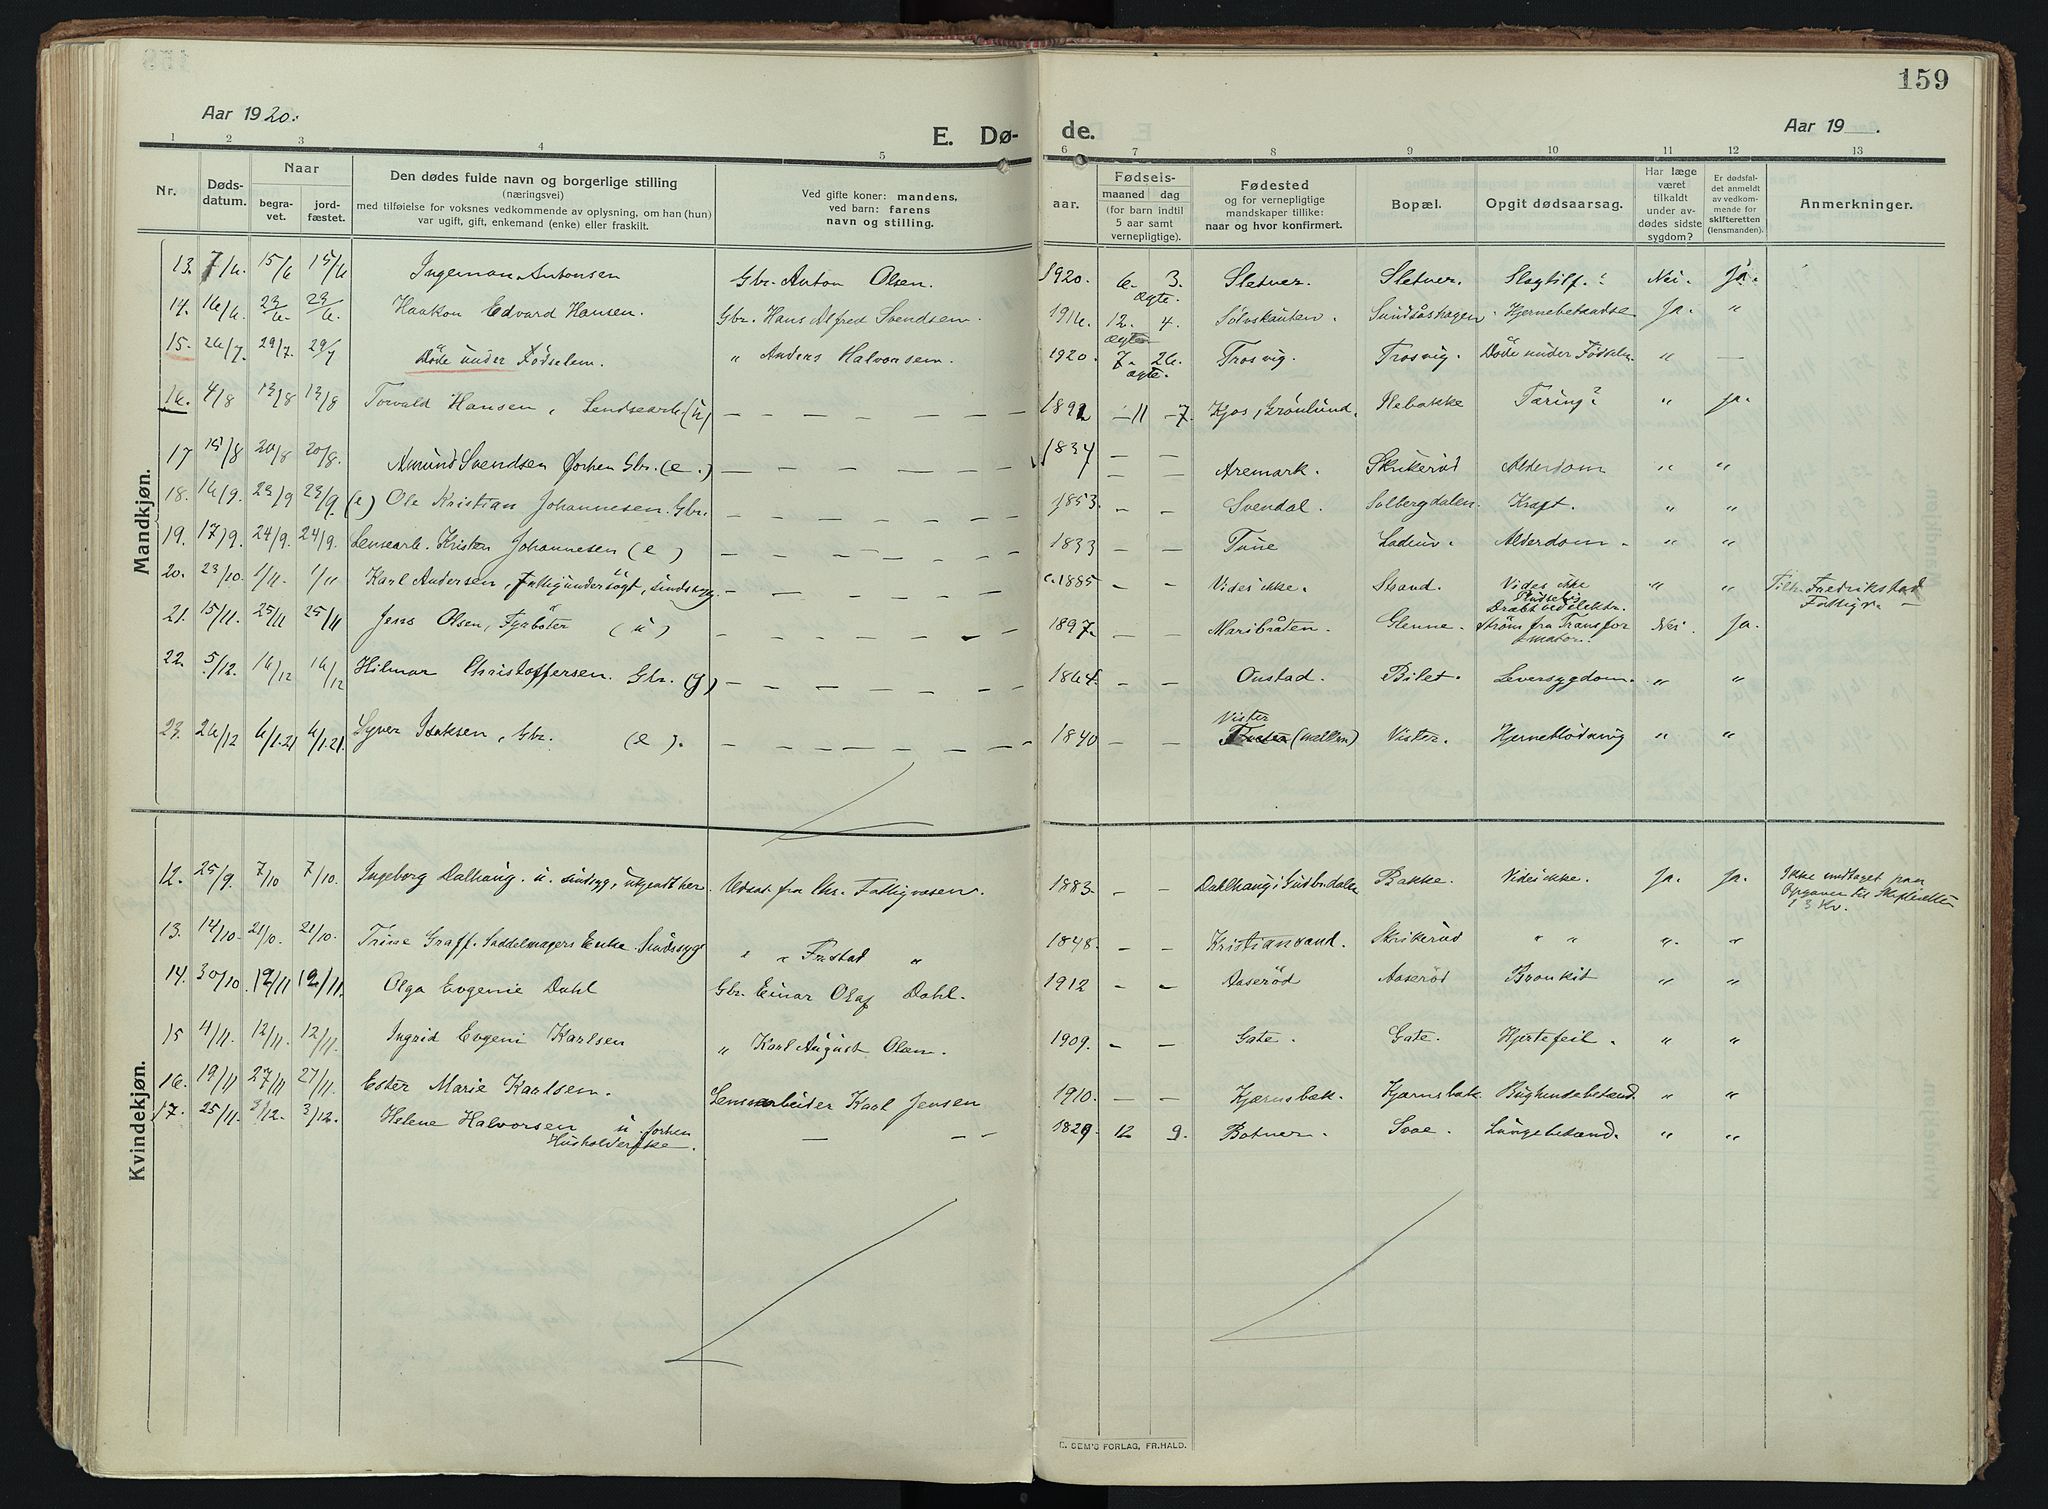 159
Aar 1920.
E. Dø-
de.
Aar 19 .
1 2 3 4 5 6 7 8 9 10 11 12 13
Nr.
Døds-
datum.
Naar
begra-
vet.
jord-
fæstet.
Den dødes fulde navn og borgerlige stilling
(næringsvei)
med tilføielse for voksnes vedkommende av oplysning, om han (hun)
var ugift, gift, enkemand (enke) eller fraskilt.
Ved gifte koner: mandens,
ved barn: farens
navn og stilling.
aar.
Fødsels-
maaned dag
(for barn indtil
5 aar samt
vernepligtige).
Fødested
og for vernepligtige
mandskaper tillike:
naar og hvor konfirmert.
Bopæl.
Opgit dødsaarsag.
Har læge
været
tilkaldt
under av-
dødes sidste
sygdom?
Er dødsfal-
det anmeldt
av vedkom-
mende for
skifteretten
(lensmanden).
Anmerkninger.
Mandkjøn.
13. 7/6. 15/6 15/6 Ingeman Antonsen Gbr. Anton Olsen. 1920. 6. 3. Sletner. Sletner. Slagtilf.? Nei. Ja.
ægte.
14. 16/6. 23/6. 23/6. Haakon Edvard Hansen. Gbr. Hans Alfred Svendsen. 1916. 12. 4. Sølvskauten. Sundsåshagen. Hjernebetændse Ja. "
ægte
15. 26/7. 29/7. 29/7 Døde under Fødselen. " Anders Halvorsen. 1920. 7. 26. Trosvig. Trosvig. Døde under Fødselen. " —
ægte.
16. 4/8 13/8 13/8 Torvald Hansen, Lendsearb. (u) — — — 1892 — 11 — 7. Kjos, Grønlund. Ilebakke Tæring? " Ja.
17 15/8 20/8 20/8. Amund Svendsen forhen Gbr. (e.) — — — 1834 — — Aremark. Skrikerød Alderdom " "
18. 16/9. 23/9 23/9 (e) Ole Kristian Johannesen. Gbr. — — — 1853. — — Svendal. Solbergdalen. Kræft. " "
19. 17/9. 24/9. 24/9. Lensearb. Kristen Johannesen (e) — — — 1833 — — Tune Alderdom. " "
20. 23/10. 1/11. 1/11 Karl Andersen, Fattigundersøgt, sindssyg. — — — c. 1885 — — Vides ikke. Strand. Vides ikke " " Tilh. Fredrikstad
Fattigv. —
21. 15/11. 25/11 25/11 Jens Olsen, Fyrbøter (u) — — — 1897. — — Maribråten. Glenne. Pludselig
Dræbt ved elektr.
Strøm fra Transfor
mator. Nei. Ja.
22. 5/12. 16/12 16/12 Hilmar Christoffersen. Gbr. (g) — — — 1864. — — Onstad. Bilet. Leversygdom. " "
23. 26/12 6/1.21 6/1.21. Syver Isaksen, Gbr. (e). — — — 1840 — — Vister
(Hallen) Vister. Hjerneblødning " "
Kvindekjøn.
12. 25/9. 7/10 7/10. Ingeborg Dalhaug. u. sindsyg, ukjendt her. Udsat fra Chr. Fattigvæsen. 1883. — — Dahlhaug i Gudbrdalen Bakke. Vides ikke. Ja. Ja. Ikke mottaget paa
Opgaver til Skifteretten
13 Kv.
13. 14/10. 21/10. 21/10. Trine Graff. Saddelmagers Enke. Sindssyg " " Fr.stad " 1848. — — Kristiansand. Skrikerød " " " "
14. 30/10 12/11 12/11. Olga Evgenie Dahl Gbr. Einar Olaf Dahl. 1912 — — Aaserød Aaserød Bronkit " "
15 4/11. 12/11. 12/11. Ingrid Evgeni Karlsen " Karl August Olsen. 1909. — — Gate. Gate. Hjertefeil. " "
16. 19/11 27/11 27/11. Ester Marie Karlsen. Lensearbeider Karl Jensen 1910. — — Kjærnsbæk. Kjærnsbæk. Bughindebetænd. " "
17. 25/11. 3/12. 3/12. Helene Halvorsen u. forhen
Husholderske. — — 1829. 12 9. Botner. Svae. Lungebetænd. " "
E. SEM'S FORLAG, FR.HALD.